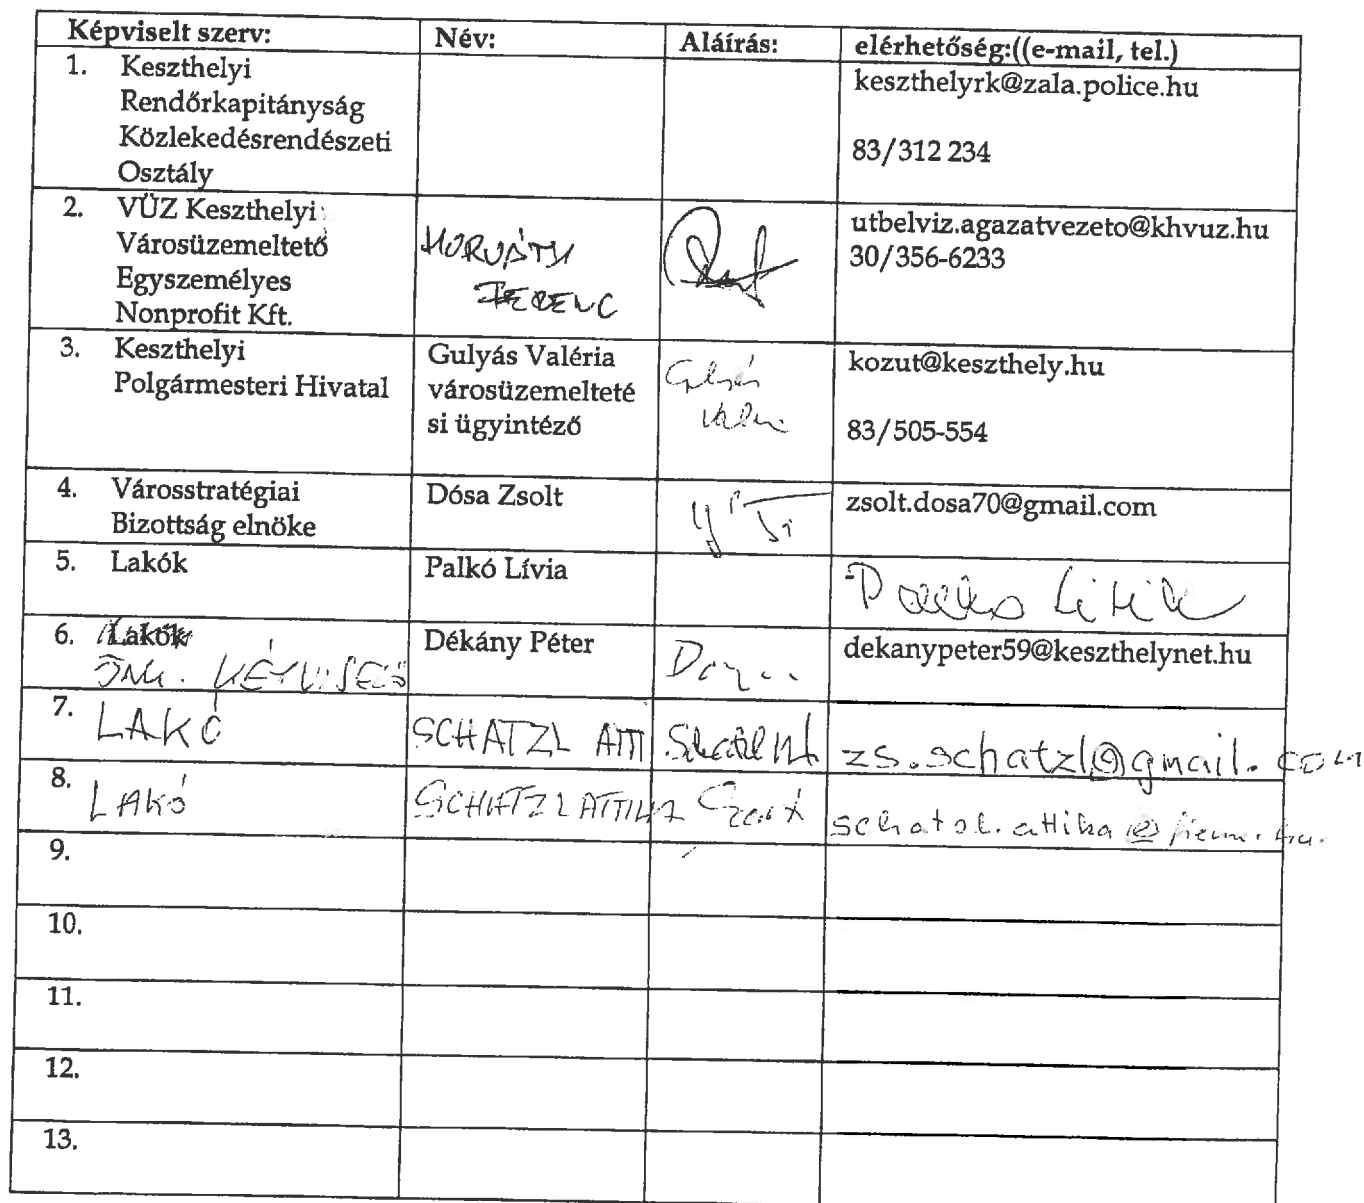 Képviselt szerv: Név: Aláírás: elérhetőség:((e-mail, tel.)
1. Keszthelyi
Rendőrkapitányság
Közlekedésrendészeti
Osztály
keszthelyrk@zala.police.hu
83/312 234
2. VÜZ Keszthelyi
Városüzemeltető
Egyszemélyes
Nonprofit Kft.
HORVÁTH
FERENC
utbelviz.agazatvezeto@khvuz.hu
30/356-6233
3. Keszthelyi
Polgármesteri Hivatal
Gulyás Valéria
városüzemelteté
si ügyintéző
kozut@keszthely.hu
83/505-554
4. Városstratégiai
Bizottság elnöke
Dósa Zsolt
zsolt.dosa70@gmail.com
5. Lakók
Palkó Lívia
6. Lakók
ÖNK. KÉPVISELŐ
Dékány Péter
dekanypeter59@keszthelynet.hu
7. LAKÓ
SCHATZL
zs.schatzl@gmail.com
8. LAKÓ
SCHATZL ATTILA
9.
10.
11.
12.
13.